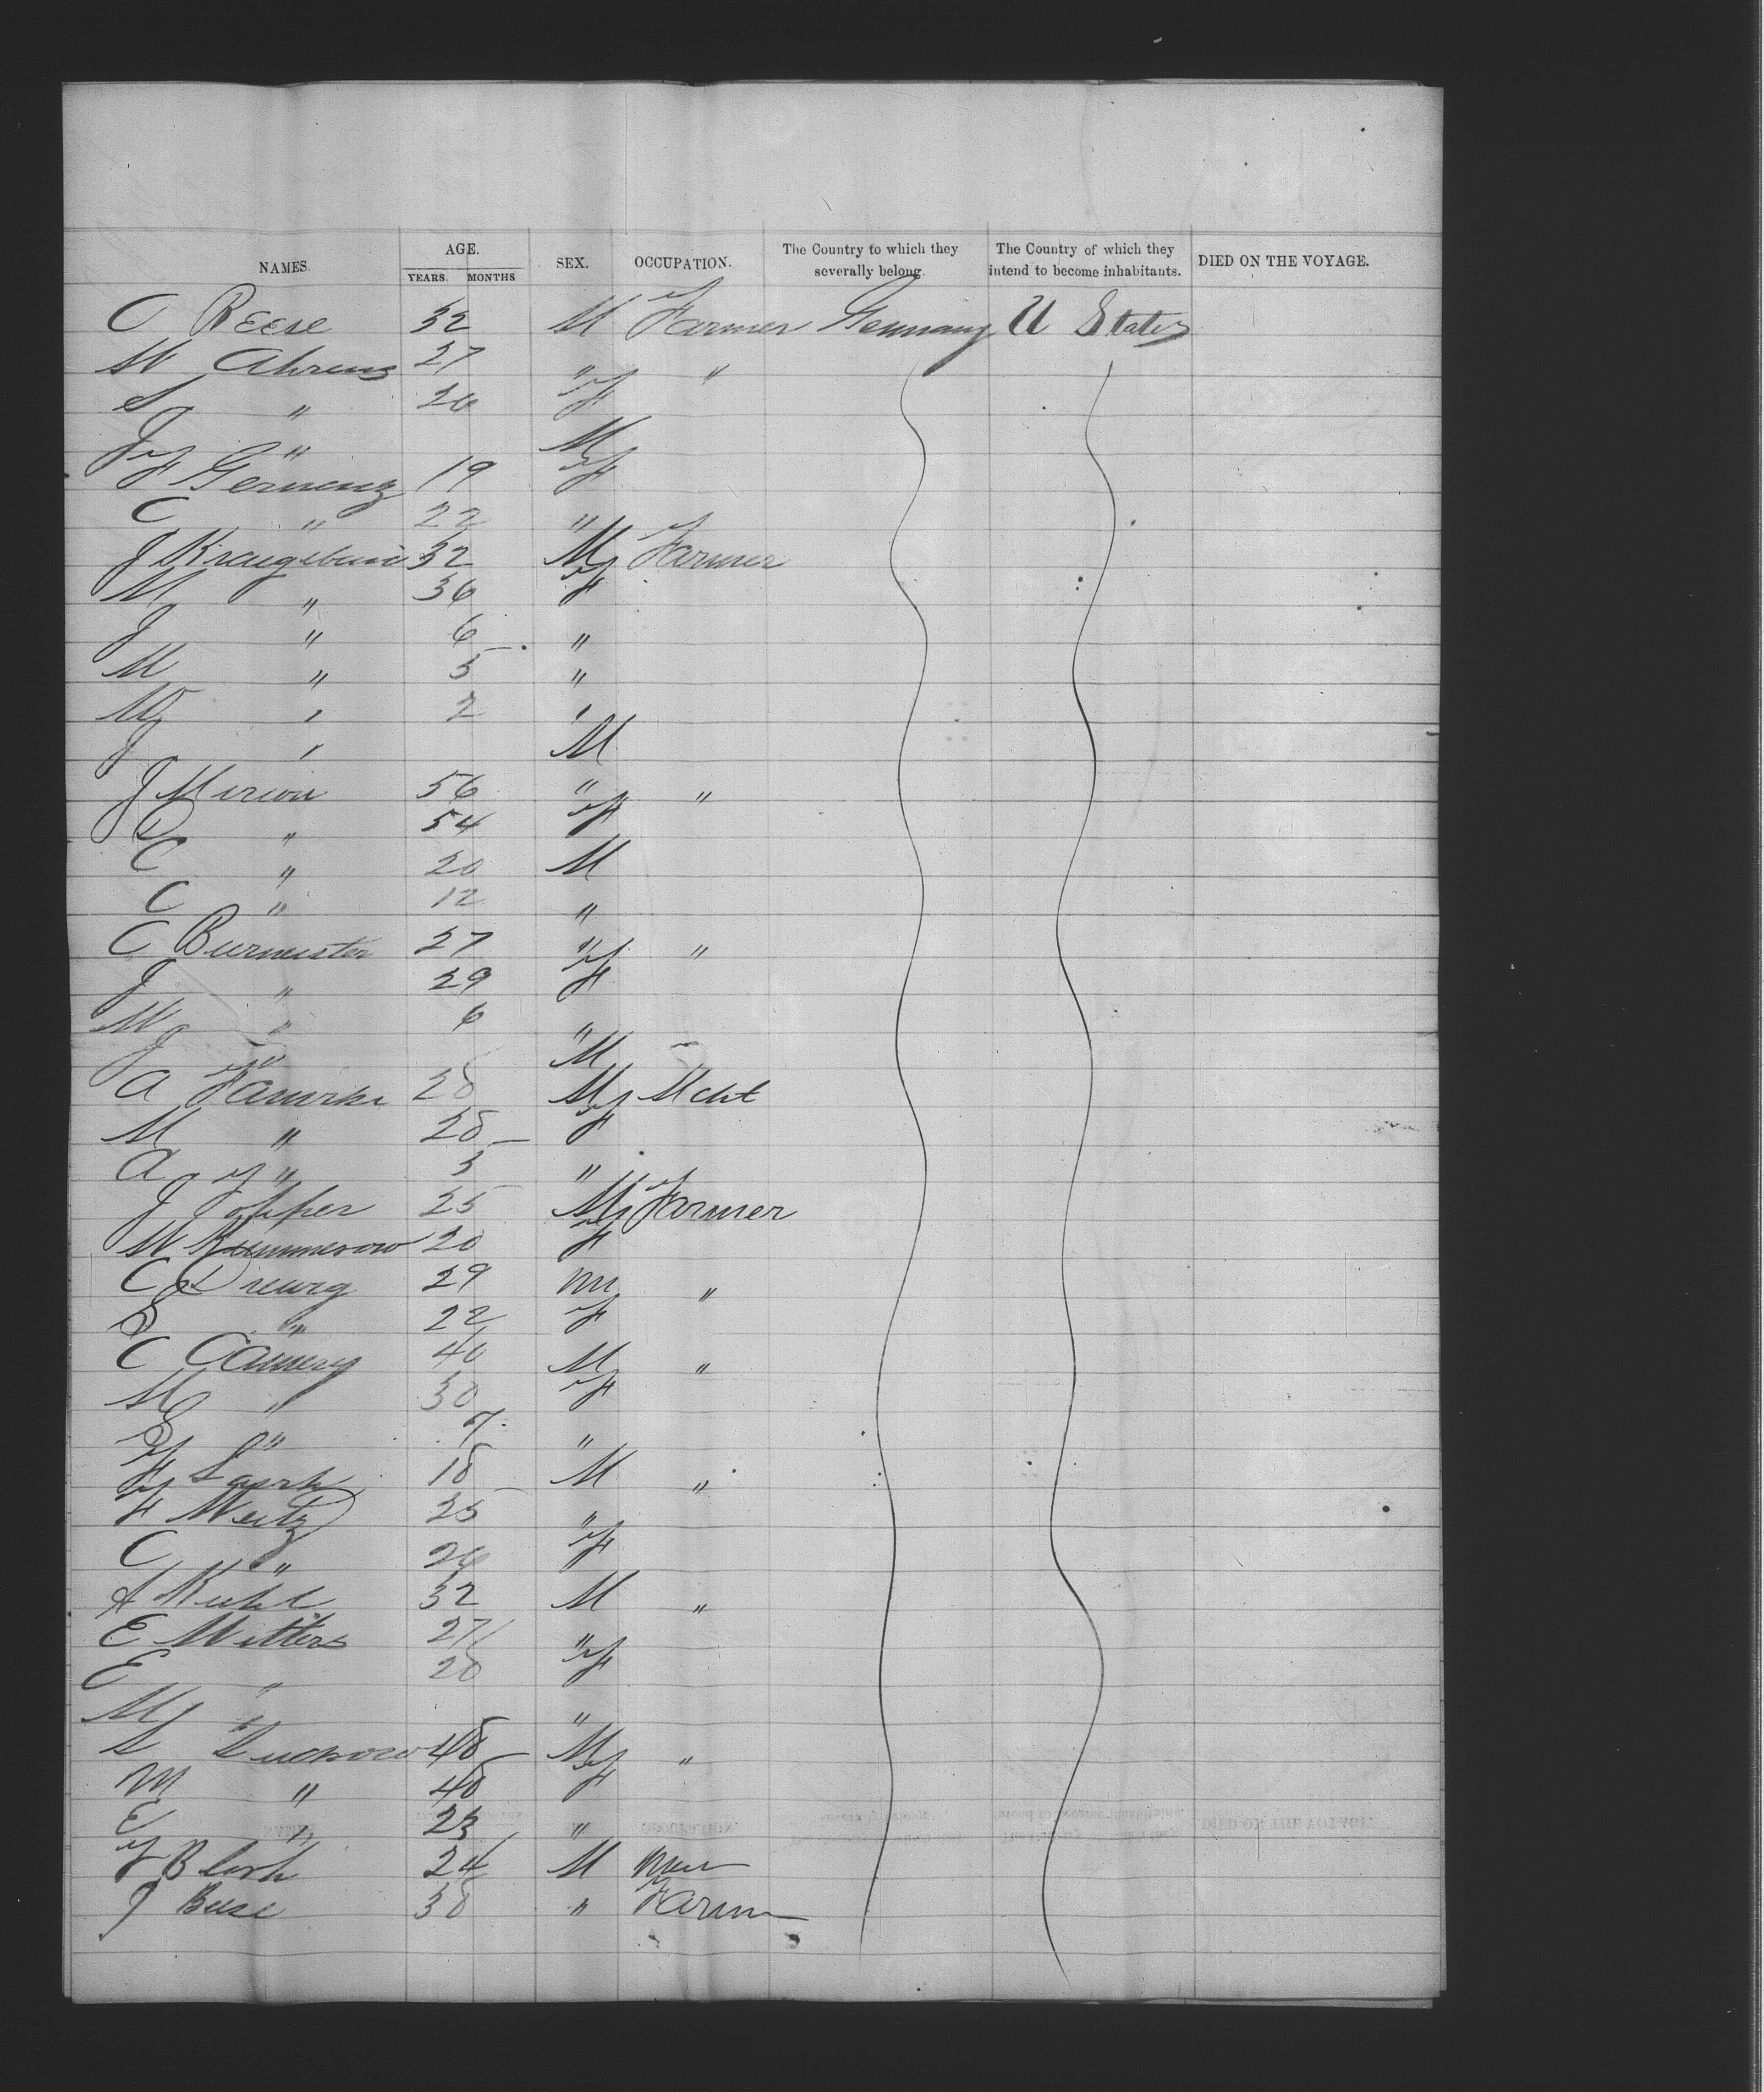 NAMES. AGE. YEARS. MONTHS SEX. OCCUPATION. The Country to which they severally belong. The Country of which they intend to become inhabitants. DIED ON THE VOYAGE.
C Reese 32 M Farmer Germany U States
W Ahrens 27 " "
S " 26 F
J " M
F 19 F
C " 22 "
J 32 M Farmer
M " 36 F
J " 6 "
M " 5 "
W " 2 "
J " M
J 56 " "
D " 54 F
C " 20 M
C " 12 "
C Burmester 27 " "
J " 29 F
W " 6 "
J " M
A 28 M Mcht
M " 28 F
A " 3 "
J Topper 25 M Farmer
W Kummerow 20 F
C Drewg 29 M "
S " 22 F
C 40 M "
M " 30 F
E " 7 "
F 18 M "
F Weitz 25 "
C " 26 F
A Kuhl 32 M "
E Witters 27 "
E " 28 F
M " "
L 48 M "
M " 48 F
E " 23 "
F Block 24 M
J Beese 38 " Farm